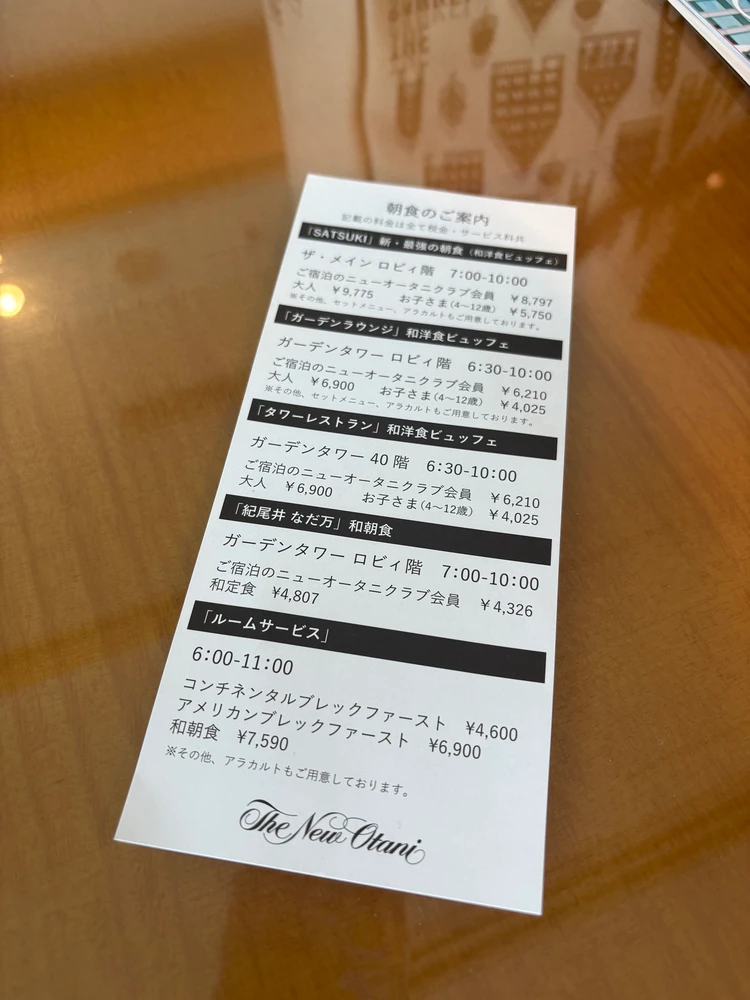 朝食のご案内
記載の料金は全て税金・サービス料共
「SATSUKI」新・最強の朝食（和洋食ビュッフェ）
ザ・メイン ロビィ階　7:00-10:00
ご宿泊のニューオータニクラブ会員　￥8,797
大人　￥9,775　お子さま(4〜12歳)　￥5,750
※その他、セットメニュー、アラカルトもご用意しております。
「ガーデンラウンジ」和洋食ビュッフェ
ガーデンタワー ロビィ階　6:30-10:00
ご宿泊のニューオータニクラブ会員　￥6,210
大人　￥6,900　お子さま(4〜12歳)　￥4,025
※その他、セットメニュー、アラカルトもご用意しております。
「タワーレストラン」和洋食ビュッフェ
ガーデンタワー 40 階　6:30-10:00
ご宿泊のニューオータニクラブ会員　￥6,210
大人　￥6,900　お子さま(4〜12歳)　￥4,025
「紀尾井 なだ万」和朝食
ガーデンタワー ロビィ階　7:00-10:00
ご宿泊のニューオータニクラブ会員　￥4,326
和定食　¥4,807
「ルームサービス」
6:00-11:00
コンチネンタルブレックファースト　¥4,600
アメリカンブレックファースト　¥6,900
和朝食　¥7,590
※その他、アラカルトもご用意しております。
The New Otani